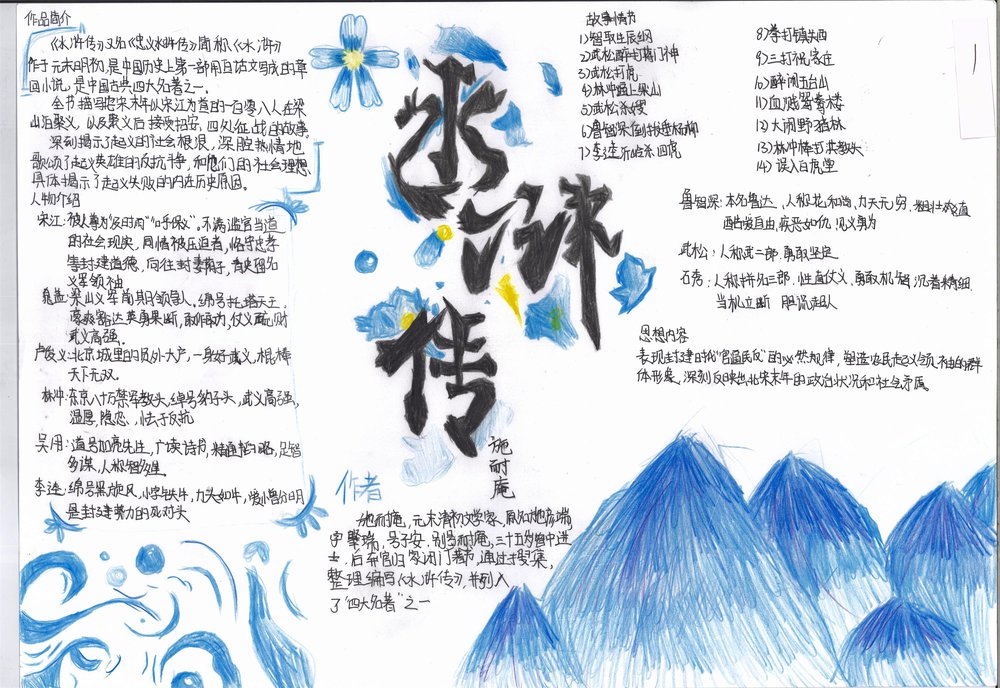 作品简介
《水浒传》又名《忠义水浒传》简称《水浒》
作于元末明初,是中国历史上第一部用白话文写成的章
回小说,是中国古典四大名著之一。
全书描写北宋末年以宋江为首的一百零八人在梁
山泊聚义,以及聚义后接受招安,四处征战的故事。
深刻揭示了起义的社会根源,深腔热情地
歌颂了起义英雄的反抗斗争,和他们的社会理想
具体揭示了起义失败的内在历史原因。
人物介绍
宋江:被人尊为"及时雨""呼保义"。不满滥官当道
的社会现实,同情被压迫者,恪守忠孝
等封建道德,向往封妻荫子,青史留名
义军领袖
晁盖:梁山义军前期领导人。绰号托塔天王
豪爽豁达英勇果断,敢作敢为,仗义疏财
武义高强。
卢俊义:北京城里的员外大户,一身好武义,棍棒
天下无双。
林冲:东京八十万禁军教头,绰号豹子头,武义高强,
温恩,隐忍,怯于反抗
吴用:道号加亮先生,广读诗书,精通韬略,足智
多谋,人称智多星。
李逵:绰号黑旋风,小字铁牛,力大如牛,爱憎分明
是封建势力的死对头
水浒传
施耐庵
作者
施耐庵,元末清初文学家,原名施彦端
字肇瑞,号子安,别号耐庵,三十五岁曾中进
士,后弃官归家闭门著书,通过搜集,
整理编写《水浒传》,并列入
了"四大名著"之一
故事情节
1)智取生辰纲
2)武松醉打蒋门神
3)武松打虎
4)林冲逼上梁山
5)武松杀嫂
6)鲁智深倒拔垂杨柳
7)李逵沂岭杀四虎
8)拳打镇关西
9)三打祝家庄
10)醉闹五台山
11)血溅鸳鸯楼
12)大闹野猪林
13)林冲棒打洪教头
14)误入白虎堂
鲁智深:本名鲁达,人称花和尚,力大无穷,粗壮耿直
酷爱自由,疾恶如仇,见义勇为
武松:人称武二郎,勇敢坚定
石秀:人称拼命三郎,性直仗义,勇敢机智,沉着精细
当机立断 胆识超人
思想内容
表现封建时代"官逼民反"的必然规律,塑造农民起义领袖的群
体形象,深刻反映出北宋末年的政治状况和社会矛盾。